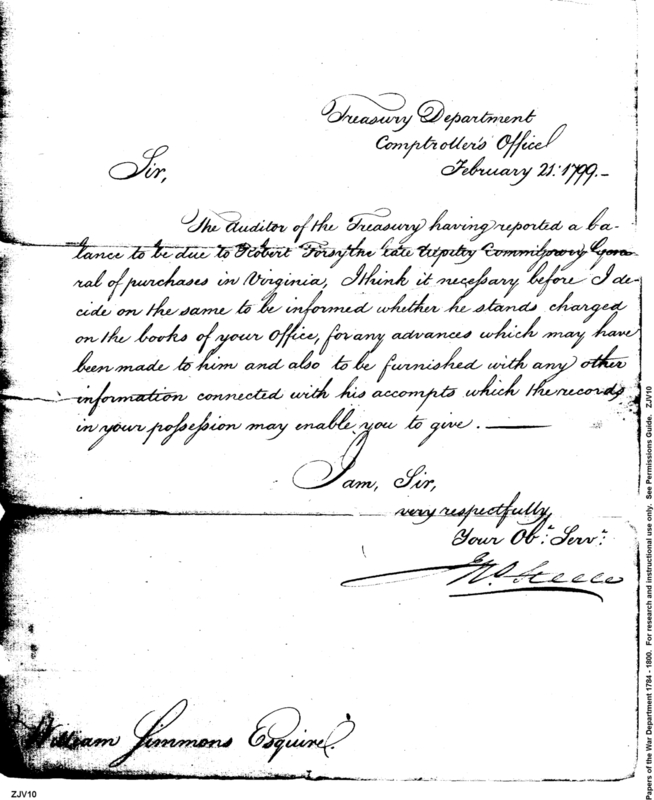 Treasury Department
Comptroller's Office
February 21: 1799.-
Sir,
The Auditor of the Treasury having reported a ba-
lance to be due to Robert Forsythe late deputy Commissary Gene-
ral of purchases in Virginia, I think it necessary before I de-
cide on the same to be informed whether he stands charged
on the books of your Office, for any advances which may have
been made to him and also to be furnished with any other
information connected with his accompts which the records
in your possession may enable you to give. ——
I am, Sir,
very respectfully
Your Obt. Servt.
Jno. Steele
William Simmons Esquire.
ZJV10
Papers of the War Department 1784 - 1800. For research and instructional use only. See Permissions Guide. ZJV10